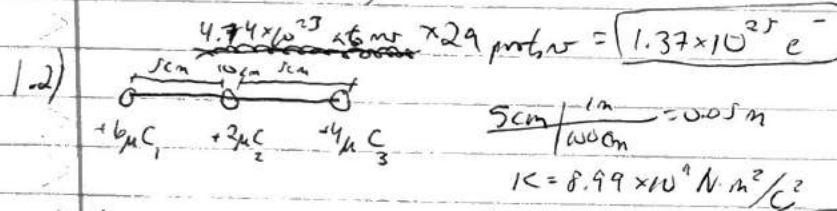 4.74×10²³ atoms ×29 protons = 1.37×10²⁵ e⁻
1.2)
5cm 10cm 5cm
+6μC₁ +2μC₂ -4μC₃
5cm | 1m
| 100cm = 0.05m
K = 8.99×10⁹ N·m²/C²